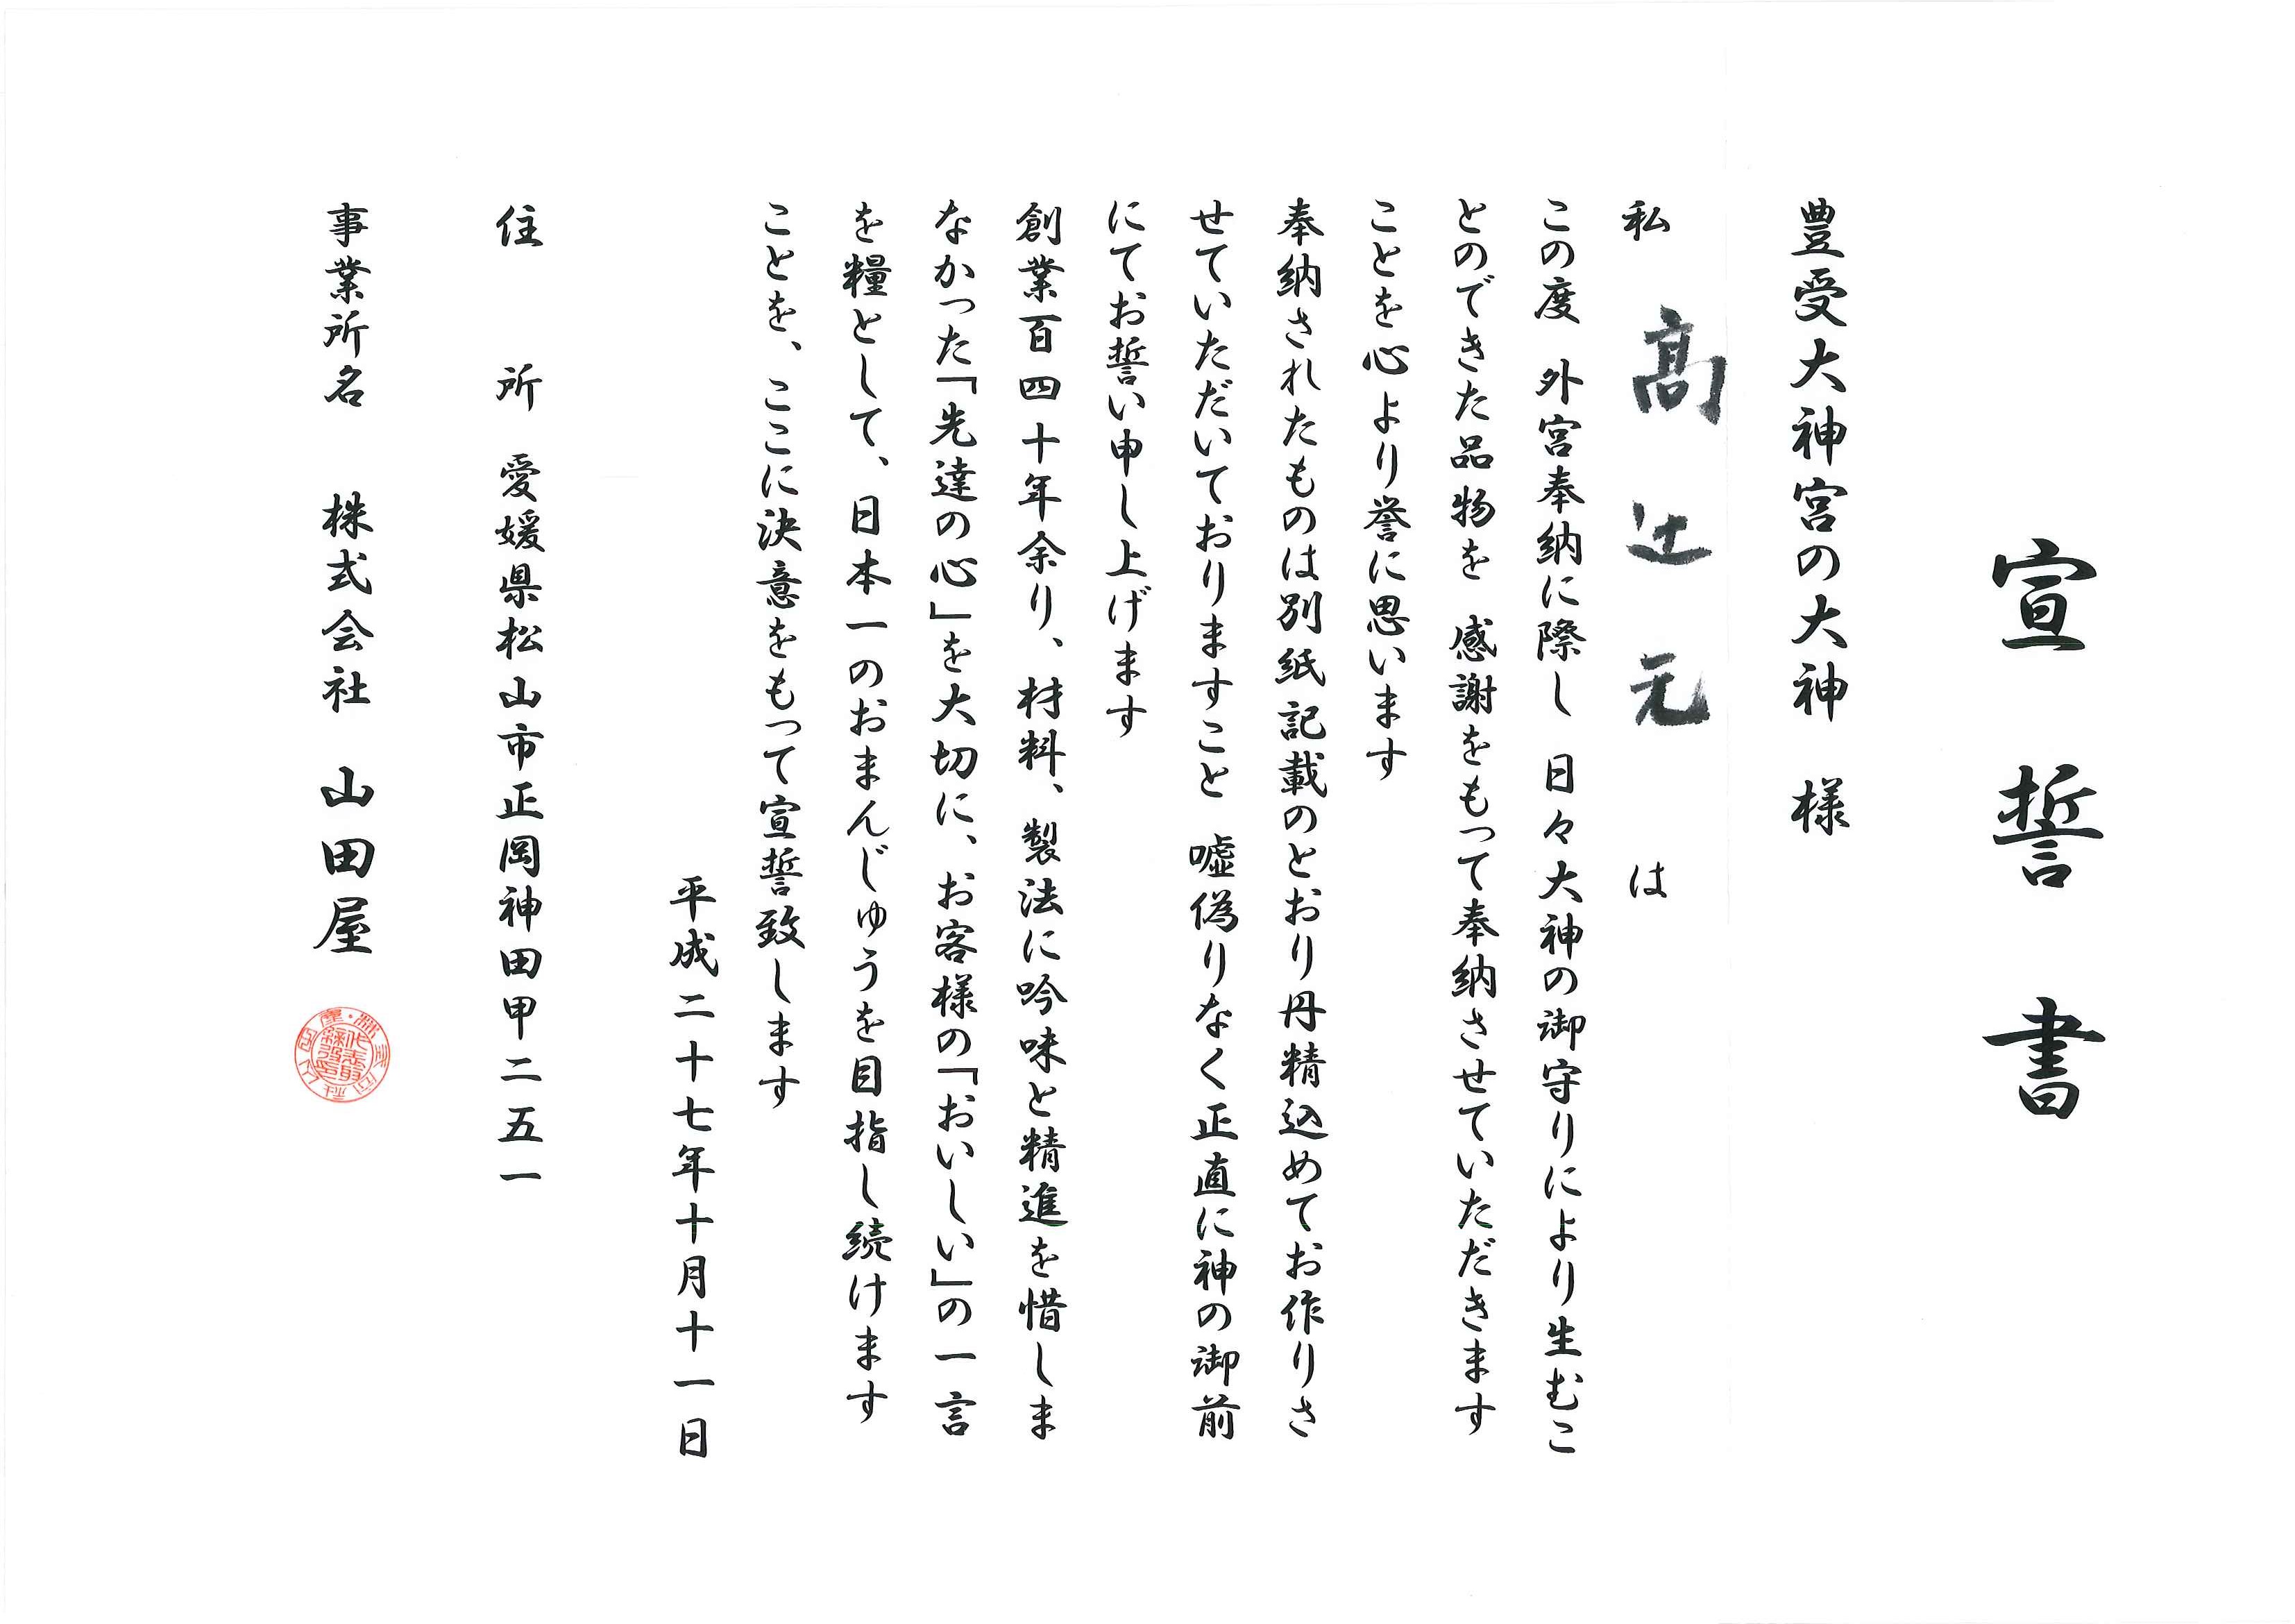 宣誓書
豊受大神宮の大神　様
私　髙辻元　は
この度　外宮奉納に際し　日々大神の御守りにより生むこ
とのできた品物を　感謝をもって奉納させていただきます
ことを心より誉に思います
奉納されたものは別紙記載のとおり丹精込めてお作りさ
せていただいておりますこと　嘘偽りなく正直に神の御前
にてお誓い申し上げます
創業百四十年余り、材料、製法に吟味と精進を惜しま
なかった「先達の心」を大切に、お客様の「おいしい」の一言
を糧として、日本一のおまんじゅうを目指し続けます
ことを、ここに決意をもって宣誓致します
平成二十七年十月十一日
住　所　愛媛県松山市正岡神田甲二五一
事業所名　株式会社　山田屋